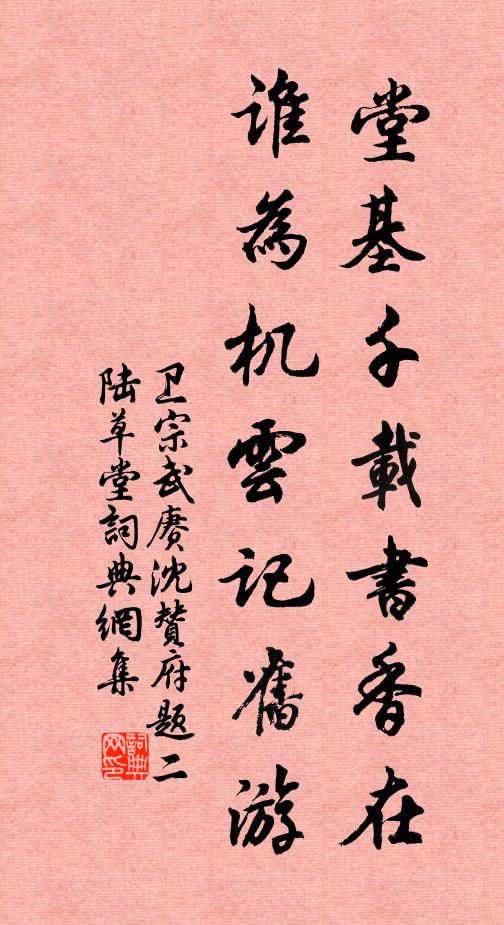 堂基千載書香在
誰為机雲記舊游
卫宗武赓沈贊府題二
陆草堂詞典網集
詞典网印